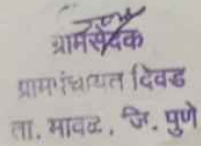 ग्रामसेवक
ग्रामपंचायत दिवड
ता. मावळ, जि. पुणे